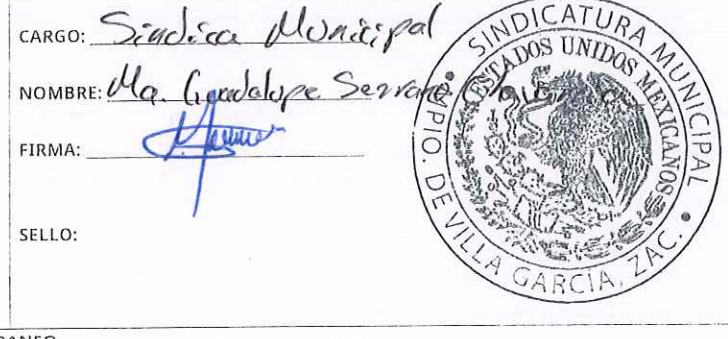 CARGO: Sindica Municipal
NOMBRE: Ma. Guadalupe Serrano
FIRMA:
SELLO:
SINDICATURA MUNICIPAL
ESTADOS UNIDOS MEXICANOS
MPIO. DE VILLA GARCIA, ZAC.